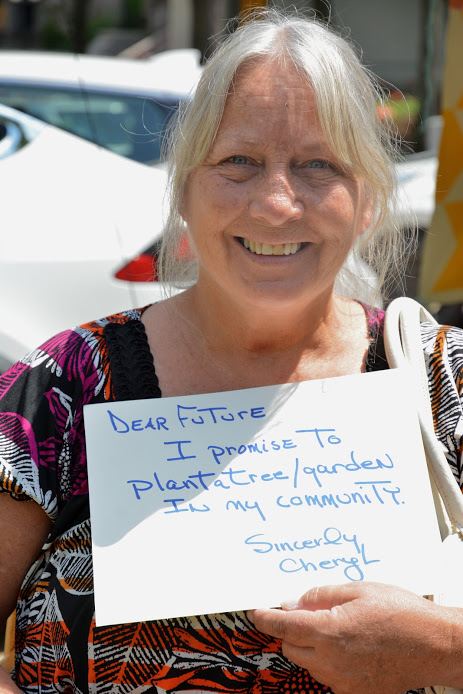 DEAR FUTURE
I PROMISE TO
plantatree/garden
IN MY COMMUNITY.
Sincerly
Cheryl